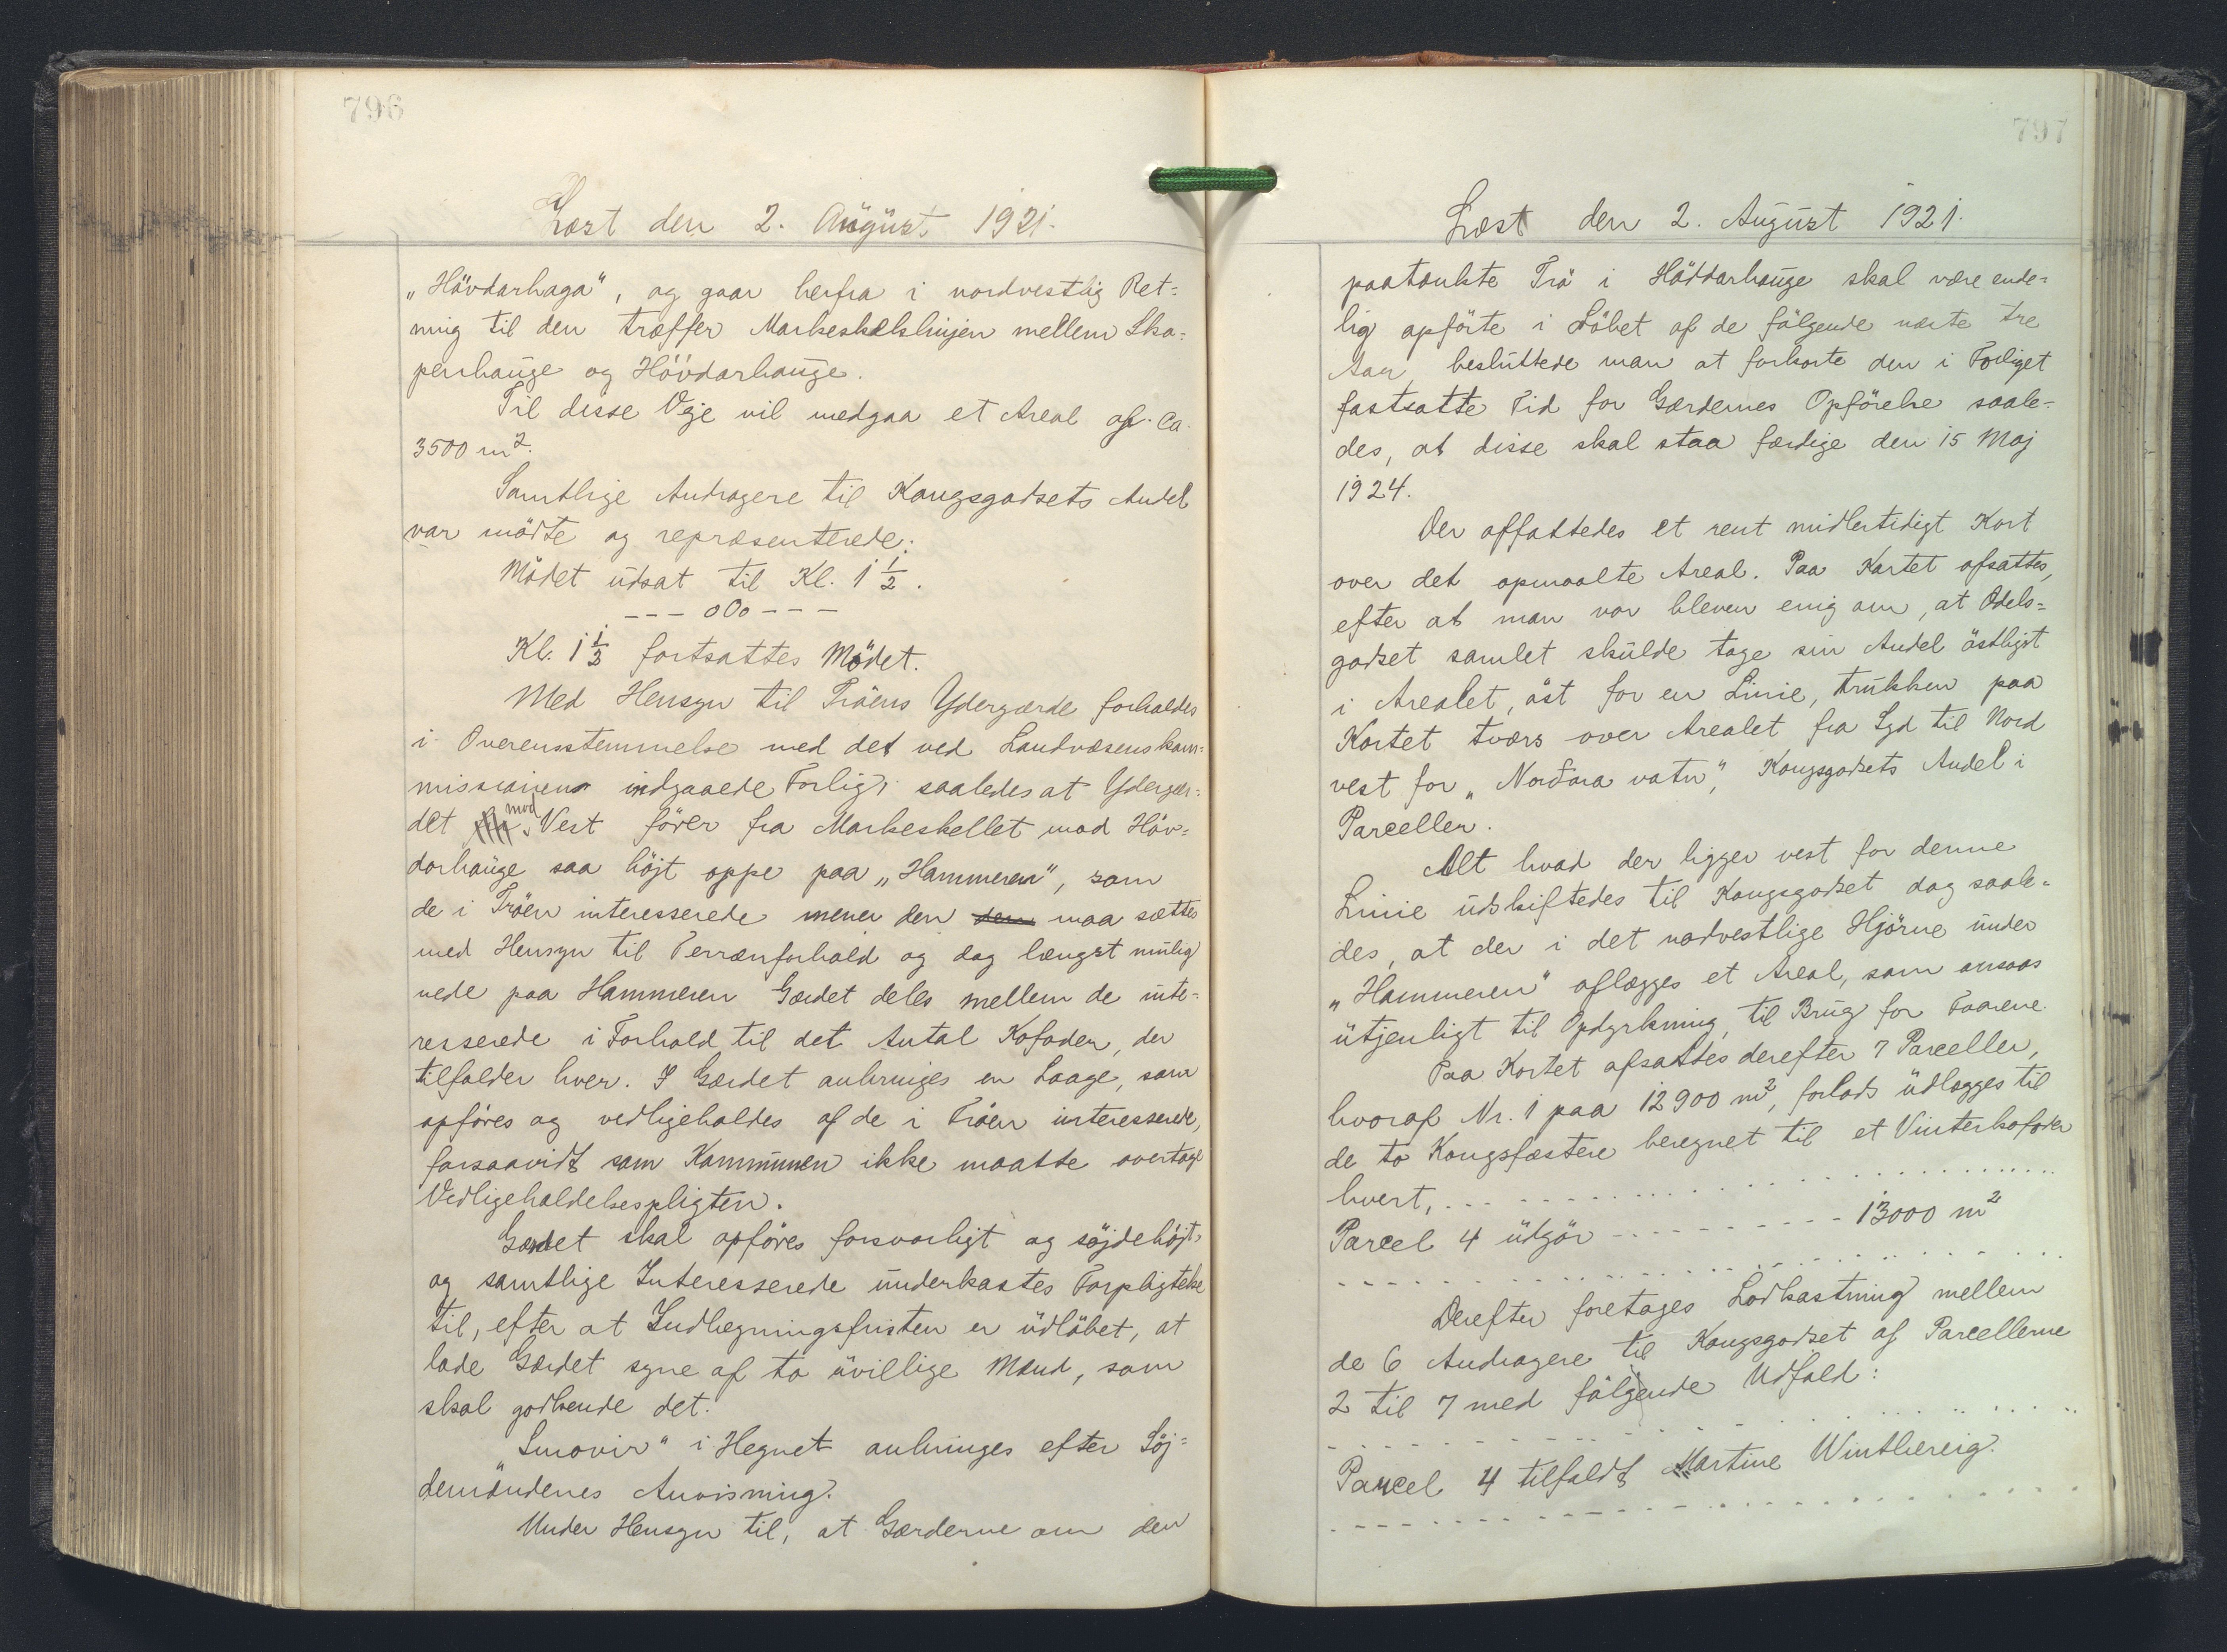 796
Læst den 2. August 1921.
„Hövdarhaga", og gaar herfra i nordvestlig Ret=
ning til den træffer Markeskelslinjen mellem Ska=
penhauge og Hövdarhauge.
Til disse Veje vil medgaa et Areal af ca.
3500 m².
Samtlige Andragere til Kongsgodsets Andel
var mödte og repræsenterede.
Mödet udsat til Kl. 1½.
--- o0o ---
Kl. 1½ fortsattes Mödet.
Med Hensyn til Tröens Ydergærde forholdes
i Overensstemmelse med det ved Landvæsenskom=
missionens indgaaede Forlig, saaledes at Ydergær=
det mod Vest förer fra Markeskellet mod Höv=
darhauge saa höjt oppe paa „Hammeren", som
de i Tröen interesserede mener den dem maa sættes
med Hensyn til Terrænforhold og dog længst mulig
nede paa Hammeren Gærdet deles mellem de inte=
resserede i Forhold til det Antal Kofoder, der
tilfalder hver. I Gærdet anbringes en Laage, som
opföres og vedligeholdes af de i Tröen interesserede,
forsaavidt som Kommunen ikke maatte overtage
Vedligeholdelsespligten.
Gærdet skal opföres forsvarligt og söjdehöjt,
og samtlige Interesserede underkastes Forpligtelse
til, efter at Indhegningsfristen er udlöbet, at
lade Gærdet syne af to uvillige Mænd, som
skal godkende det.
„Smovir" i Hegnet anbringes efter Söj=
demændenes Anvisning.
Under Hensyn til, at Gærderne om den
797
Læst den 2. August 1921.
paatænkte Trö i Hövdarhauge skal være ende=
lig opförte i Löbet af de fölgende næste tre
Aar, besluttede man at forkorte den i Forliget
fastsatte Tid for Gærdernes Opförelse saale=
des, at disse skal staa færdige den 15 Maj
1924.
Der affattedes et rent midlertidigt Kort
over det opmaalte Areal. Paa Kortet afsattes,
efter at man var bleven enig om, at Odels=
godset samlet skulde tage sin Andel östligst
i Arealet, öst for en Linie, trukken paa
Kortet tværs over Arealet fra Syd til Nord
vest for „Norðara vatn", Kongsgodsets Andel i
Parceller.
Alt hvad der ligger vest for denne
Linie udskiftedes til Kongsgodset dog saale=
des, at der i det nordvestlige Hjörne under
„Hammeren" aflægges et Areal, som ansaas
utjenligt til Opdyrkning, til Brug for Faarene.
Paa Kortet afsattes derefter 7 Parceller,
hvoraf Nr. 1 paa 12900 m², forlods udlægges til
de to Kongsfæstere beregnet til et Vinterkofoder
hvert, . - - - - - - - - - - -
Parcel 4 udgör - - - - - - - - 13000 m²
- - - - - - - - - - - - - - - -
Derefter foretages Lodkastning mellem
de 6 Andragere til Kongsgodset af Parcellerne
2 til 7 med fölgende Udfald:
- - - - - - - - - - - - - - - -
Parcel 4 tilfaldt Martine Winthereig.
- - - - - - - - - - - - - - - -